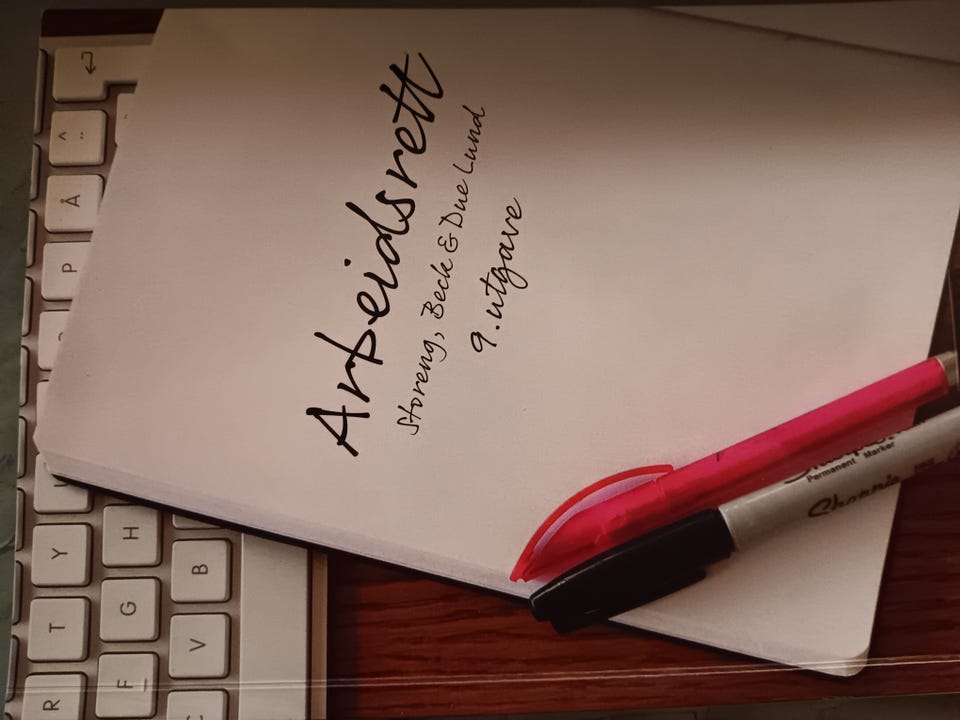 Arbeidsrett
Storeng, Beck & Due Lund
9. utgave
Permanent Marker
Sharpie
^ ¨
Å
P
Y
H
T
G
B
R
F
V